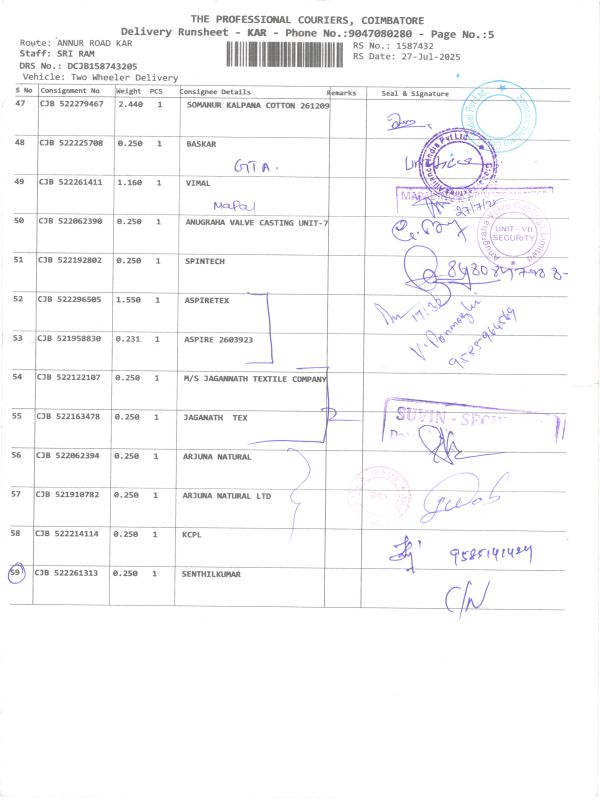 THE PROFESSIONAL COURIERS, COIMBATORE
Delivery Runsheet - KAR - Phone No.:9047080280 - Page No.:5
Route: ANNUR ROAD KAR
Staff: SRI RAM
DRS No.: DCJB158743205
Vehicle: Two Wheeler Delivery
RS No.: 1587432
RS Date: 27-Jul-2025
S No Consignment No Weight PCS Consignee Details Remarks Seal & Signature
47 CJB 522279467 2.440 1 SOMANUR KALPANA COTTON 261209
48 CJB 522225708 0.250 1 BASKAR
GTA.
49 CJB 522261411 1.160 1 VIMAL
Mapal
27/7/25
50 CJB 522062390 0.250 1 ANUGRAHA VALVE CASTING UNIT-7
UNIT - VII
SECURITY
Anugraha Valve Castings Limited
51 CJB 522192802 0.250 1 SPINTECH
52 CJB 522296505 1.550 1 ASPIRETEX
17:32
53 CJB 521958830 0.231 1 ASPIRE 2603923
54 CJB 522122107 0.250 1 M/S JAGANNATH TEXTILE COMPANY
55 CJB 522163478 0.250 1 JAGANATH TEX
SUVIN -
56 CJB 522062394 0.250 1 ARJUNA NATURAL
57 CJB 521910782 0.250 1 ARJUNA NATURAL LTD
58 CJB 522214114 0.250 1 KCPL
9585141424
59 CJB 522261313 0.250 1 SENTHILKUMAR
C/N